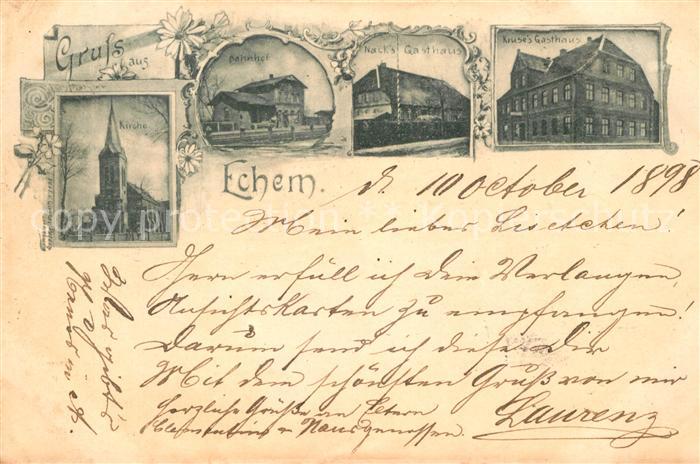 Gruss
aus
Kirche
Bahnhof
Nack's Gasthaus
Kruse's Gasthaus
Echem.
d. 10 October 1898
Mein liebes Lisetchen!
Gern erfüll ich Dein Verlangen,
Ansichtskarten zu empfangen!
Darum send ich diese Dir
Mit dem schönsten Gruß von mir
Herzliche Grüße an Eltern
u Hausgenossen.
Laurenz
copyright protection ** Kopierschutz